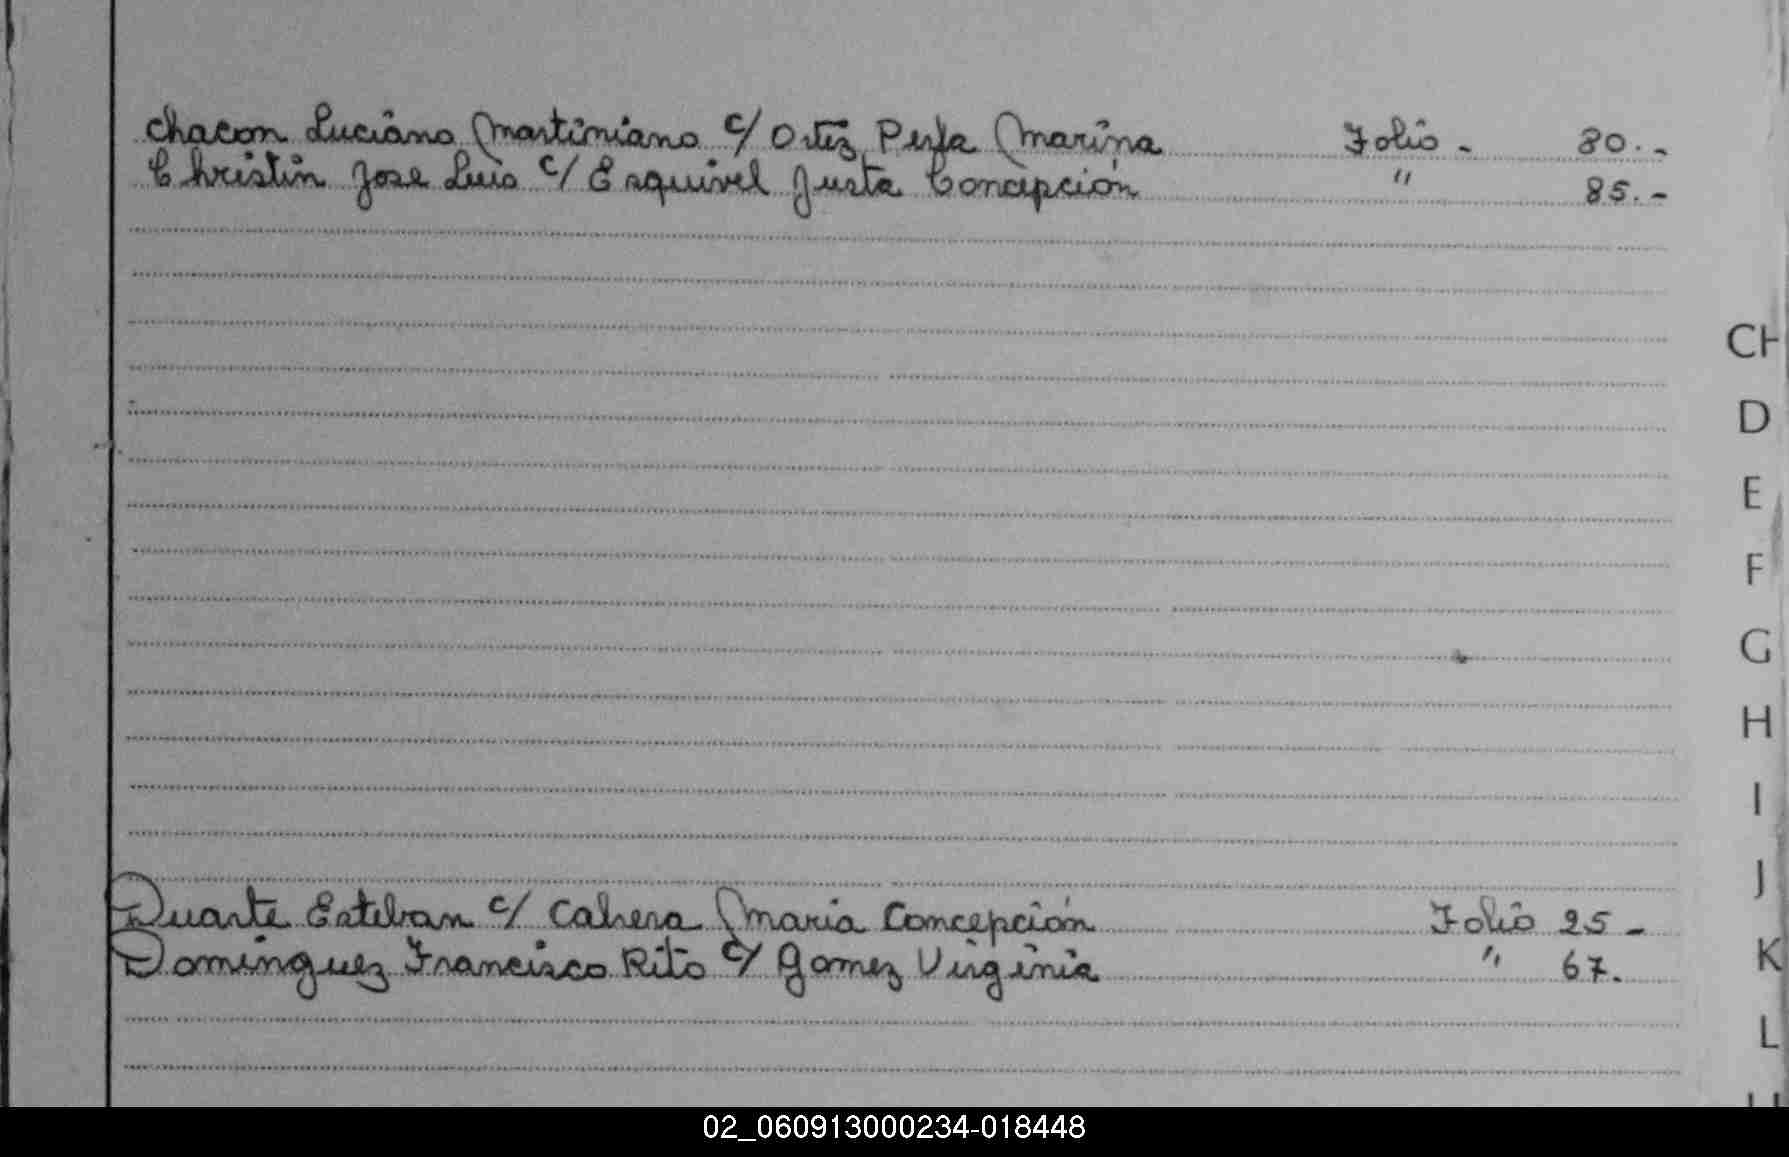 Chacon Luciano Martiniano c/ Ortiz Perla Marina Folio - 80.-
Christin Jose Luis c/ Esquivel Justa Concepción " 85.-
CH
D
E
F
G
H
I
J
Duarte Esteban c/ Cabrera Maria Concepción Folio 25-
Dominguez Francisco Rito c/ Gomez Virginia " 67.
K
L
02_060913000234-018448